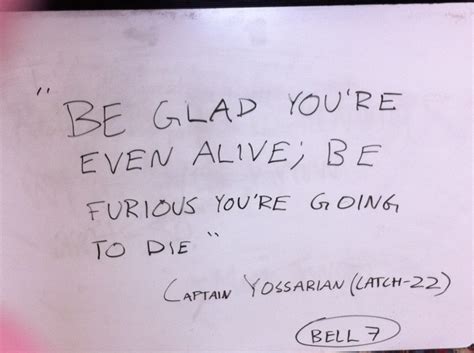 "BE GLAD YOU'RE
EVEN ALIVE; BE
FURIOUS YOU'RE GOING
TO DIE"
CAPTAIN YOSSARIAN (CATCH-22)
BELL 7